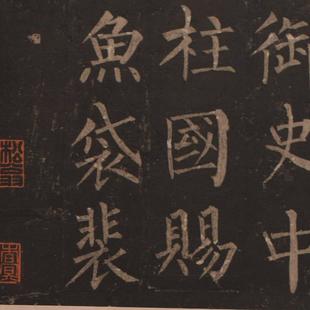 御史中
柱國賜
魚袋裴